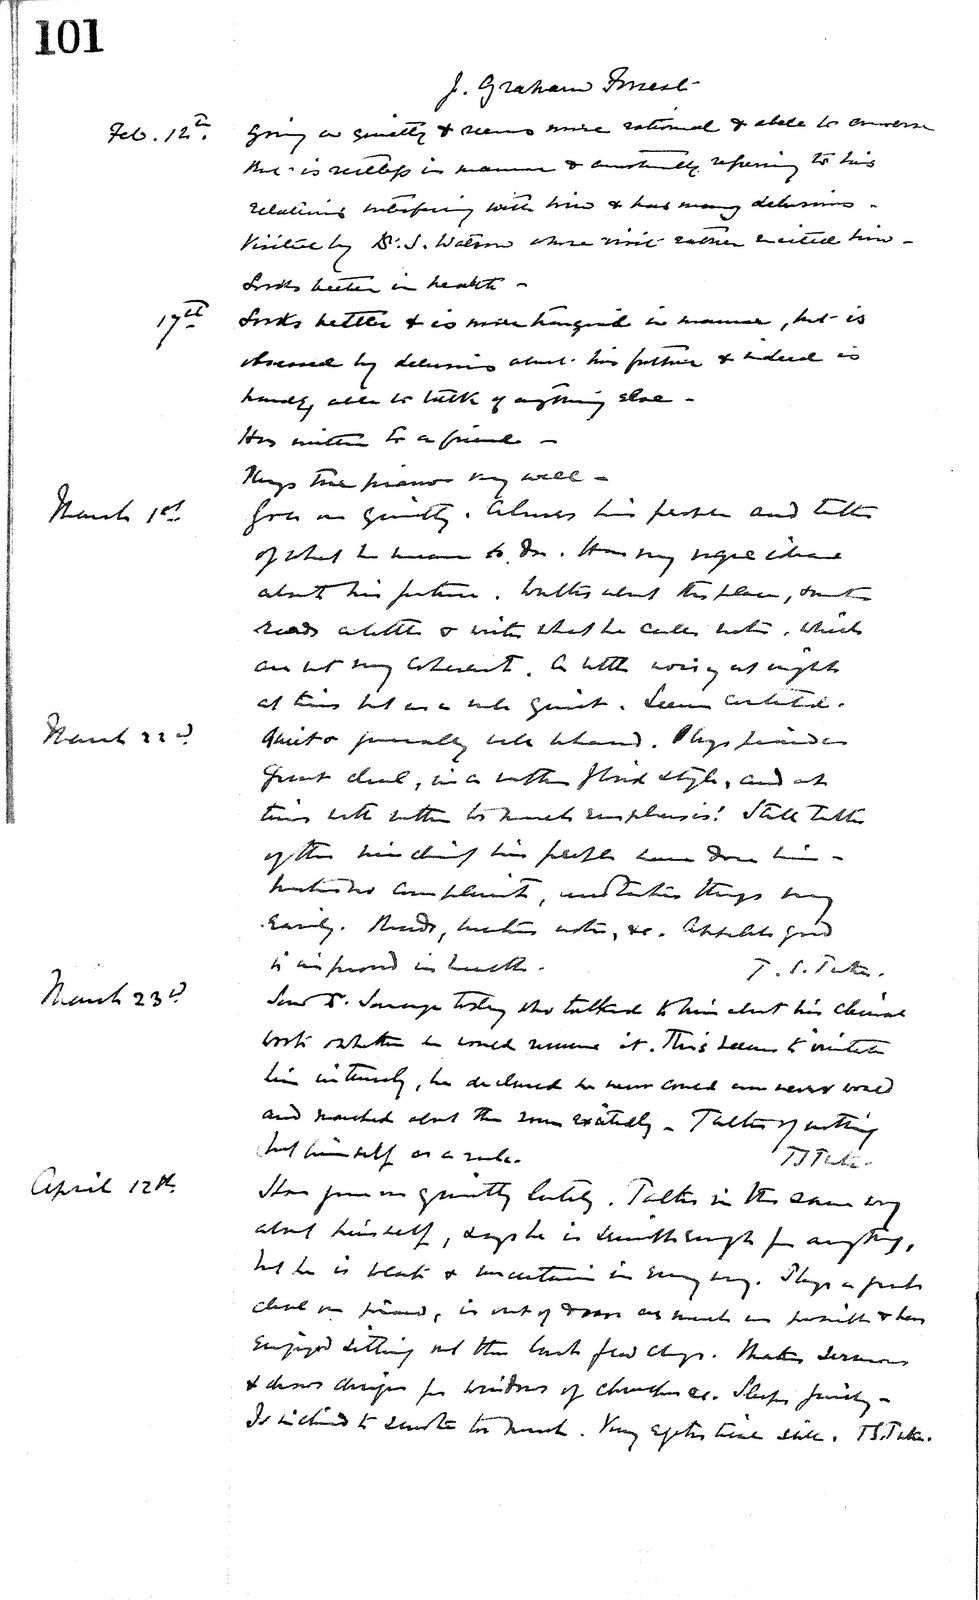 101
J. Graham Forrest
Feb. 12th. Going on quietly & seems more rational & able to converse
but is restless in manner & constantly referring to his
relations interfering with him & has many delusions -
Visited by Dr. S. Watson whose visit rather excited him -
Looks better in health -
17th Looks better & is more tranquil in manner, but is
obsessed by delusions about his father & indeed is
hardly able to talk of anything else -
Has written to a friend -
Plays the piano very well -
March 1st. Goes on quietly. Abuses his people and talks
of what he means to do. Has very vague ideas
about his future. Walks about the place, smokes
reads a little & writes what he calls notes, which
are not very coherent. A little noisy at night
at times but as a rule quiet. Seems contented.
March 22nd. Quiet & generally well behaved. Plays piano a
great deal, in a rather florid style, and at
times with rather too much emphasis! Still talks
of the mischief his people have done him -
makes no complaints, and takes things very
easily. Reads, makes notes, &c. Appetite good
is improved in health. T. S. Tuke.
March 23d Saw Dr. Savage today who talked to him about his clerical
work & whether he would resume it. This seems to irritate
him intensely, he declared he never could and never would
and marched about the room excitedly - Talks of nothing
but himself as a rule. T S Tuke.
April 12th. Has gone on quietly lately. Talks in the same way
about himself, says he is well enough for anything,
but he is weak & uncertain in every way. Plays a great
deal on piano, is out of doors as much as possible & has
enjoyed sitting out the last few days. Writes sermons
& draws designs for windows of churches &c. Sleeps fairly -
Is inclined to smoke too much. Very egotistical still. T.S. Tuke.